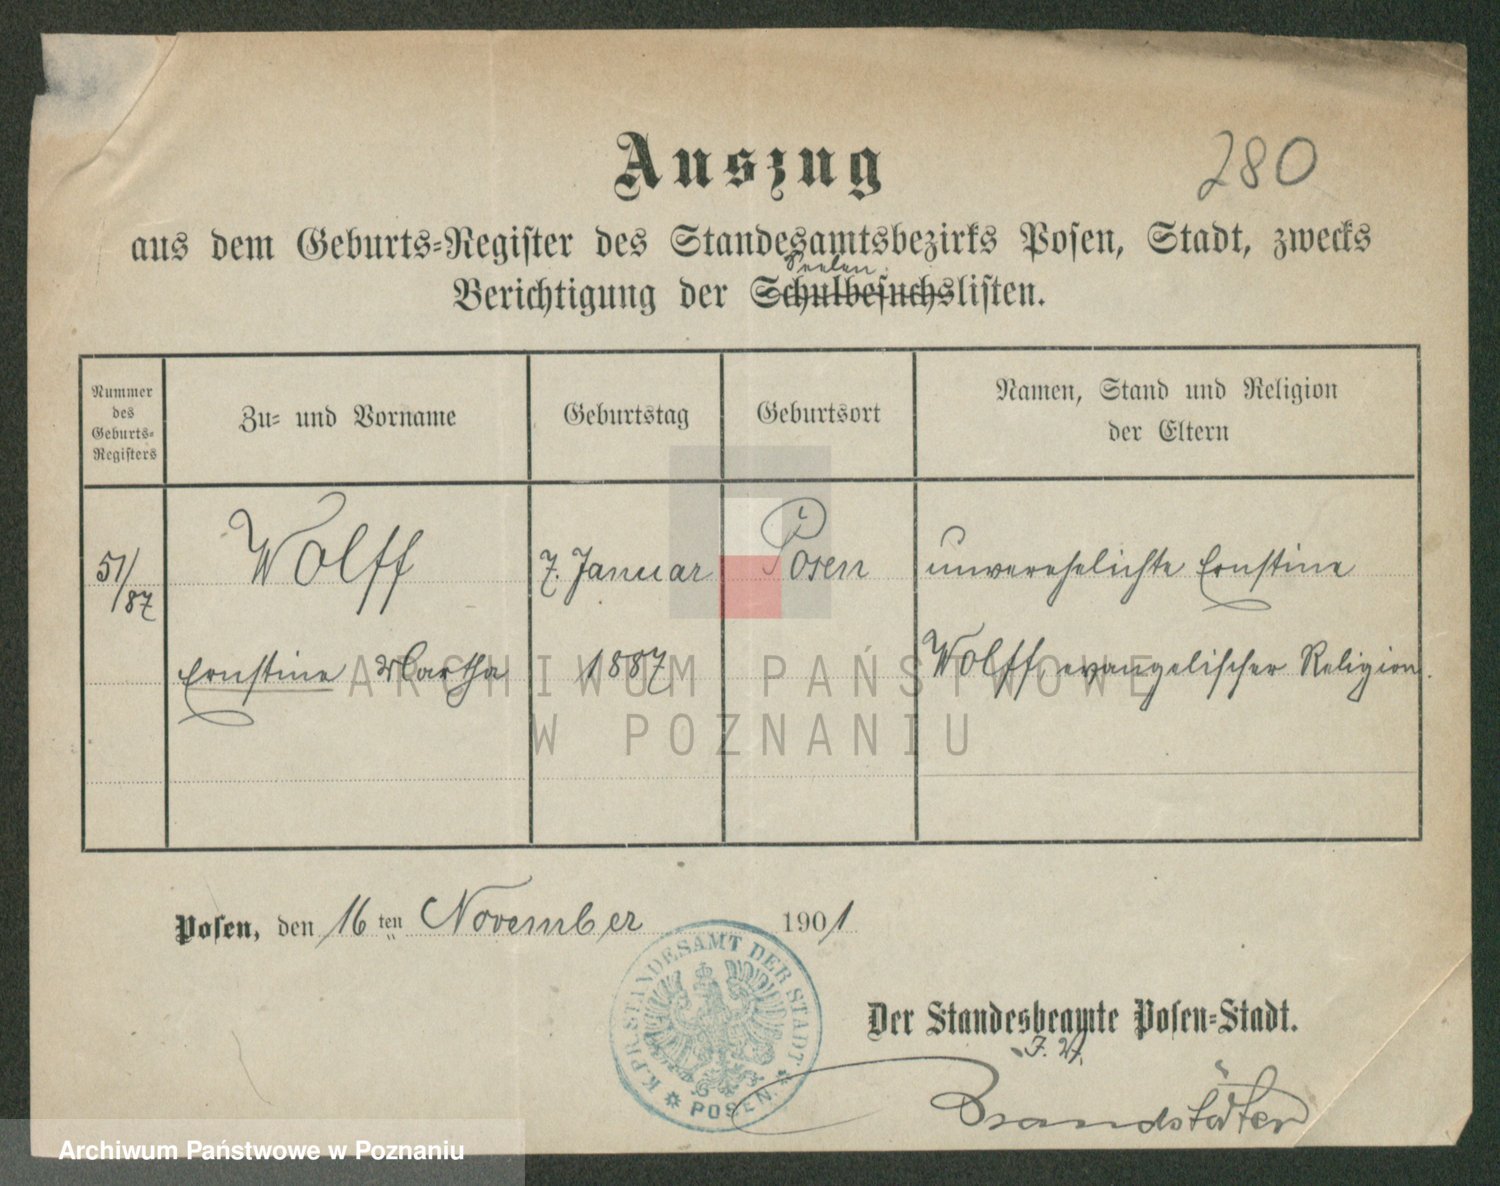 280
Auszug
aus dem Geburts-Register des Standesamtsbezirks Posen, Stadt, zwecks
Seelen
Berichtigung der Schulbesuchslisten.
Nummer
des
Geburts-
Registers
Zu- und Vorname
Geburtstag
Geburtsort
Namen, Stand und Religion
der Eltern
51/
/87
Wolff
7. Januar
Posen
unverehelichte Ernstine
Ernstine Martha
1887
Wolff, evangelischer Religion.
ARCHIWUM PAŃSTWOWE
W POZNANIU
Posen, den 16 ten November 1901
K. PR. STANDESAMT DER STADT
POSEN.
Der Standesbeamte Posen-Stadt.
J. V.
Brandstädter
Archiwum Państwowe w Poznaniu